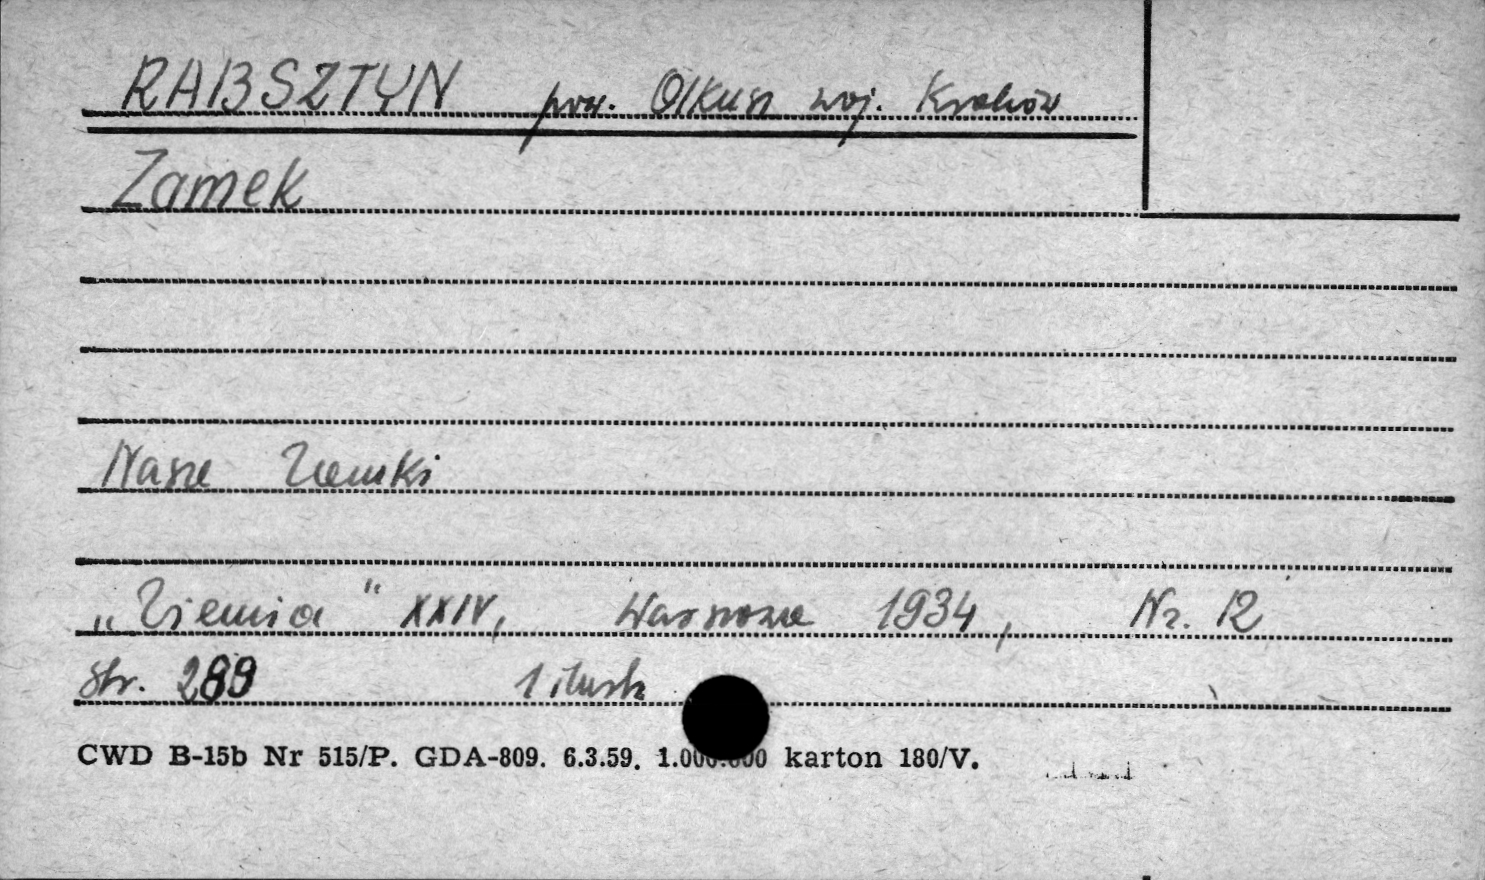 RABSZTYN pow. Olkusz woj. Kraków
Zamek
Nasze Zamki
„Ziemia" XXIV, Warszawa 1934, Nr. 12
str. 289 1 ilustr.
CWD B-15b Nr 515/P. GDA-809. 6.3.59. 1.000.000 karton 180/V.